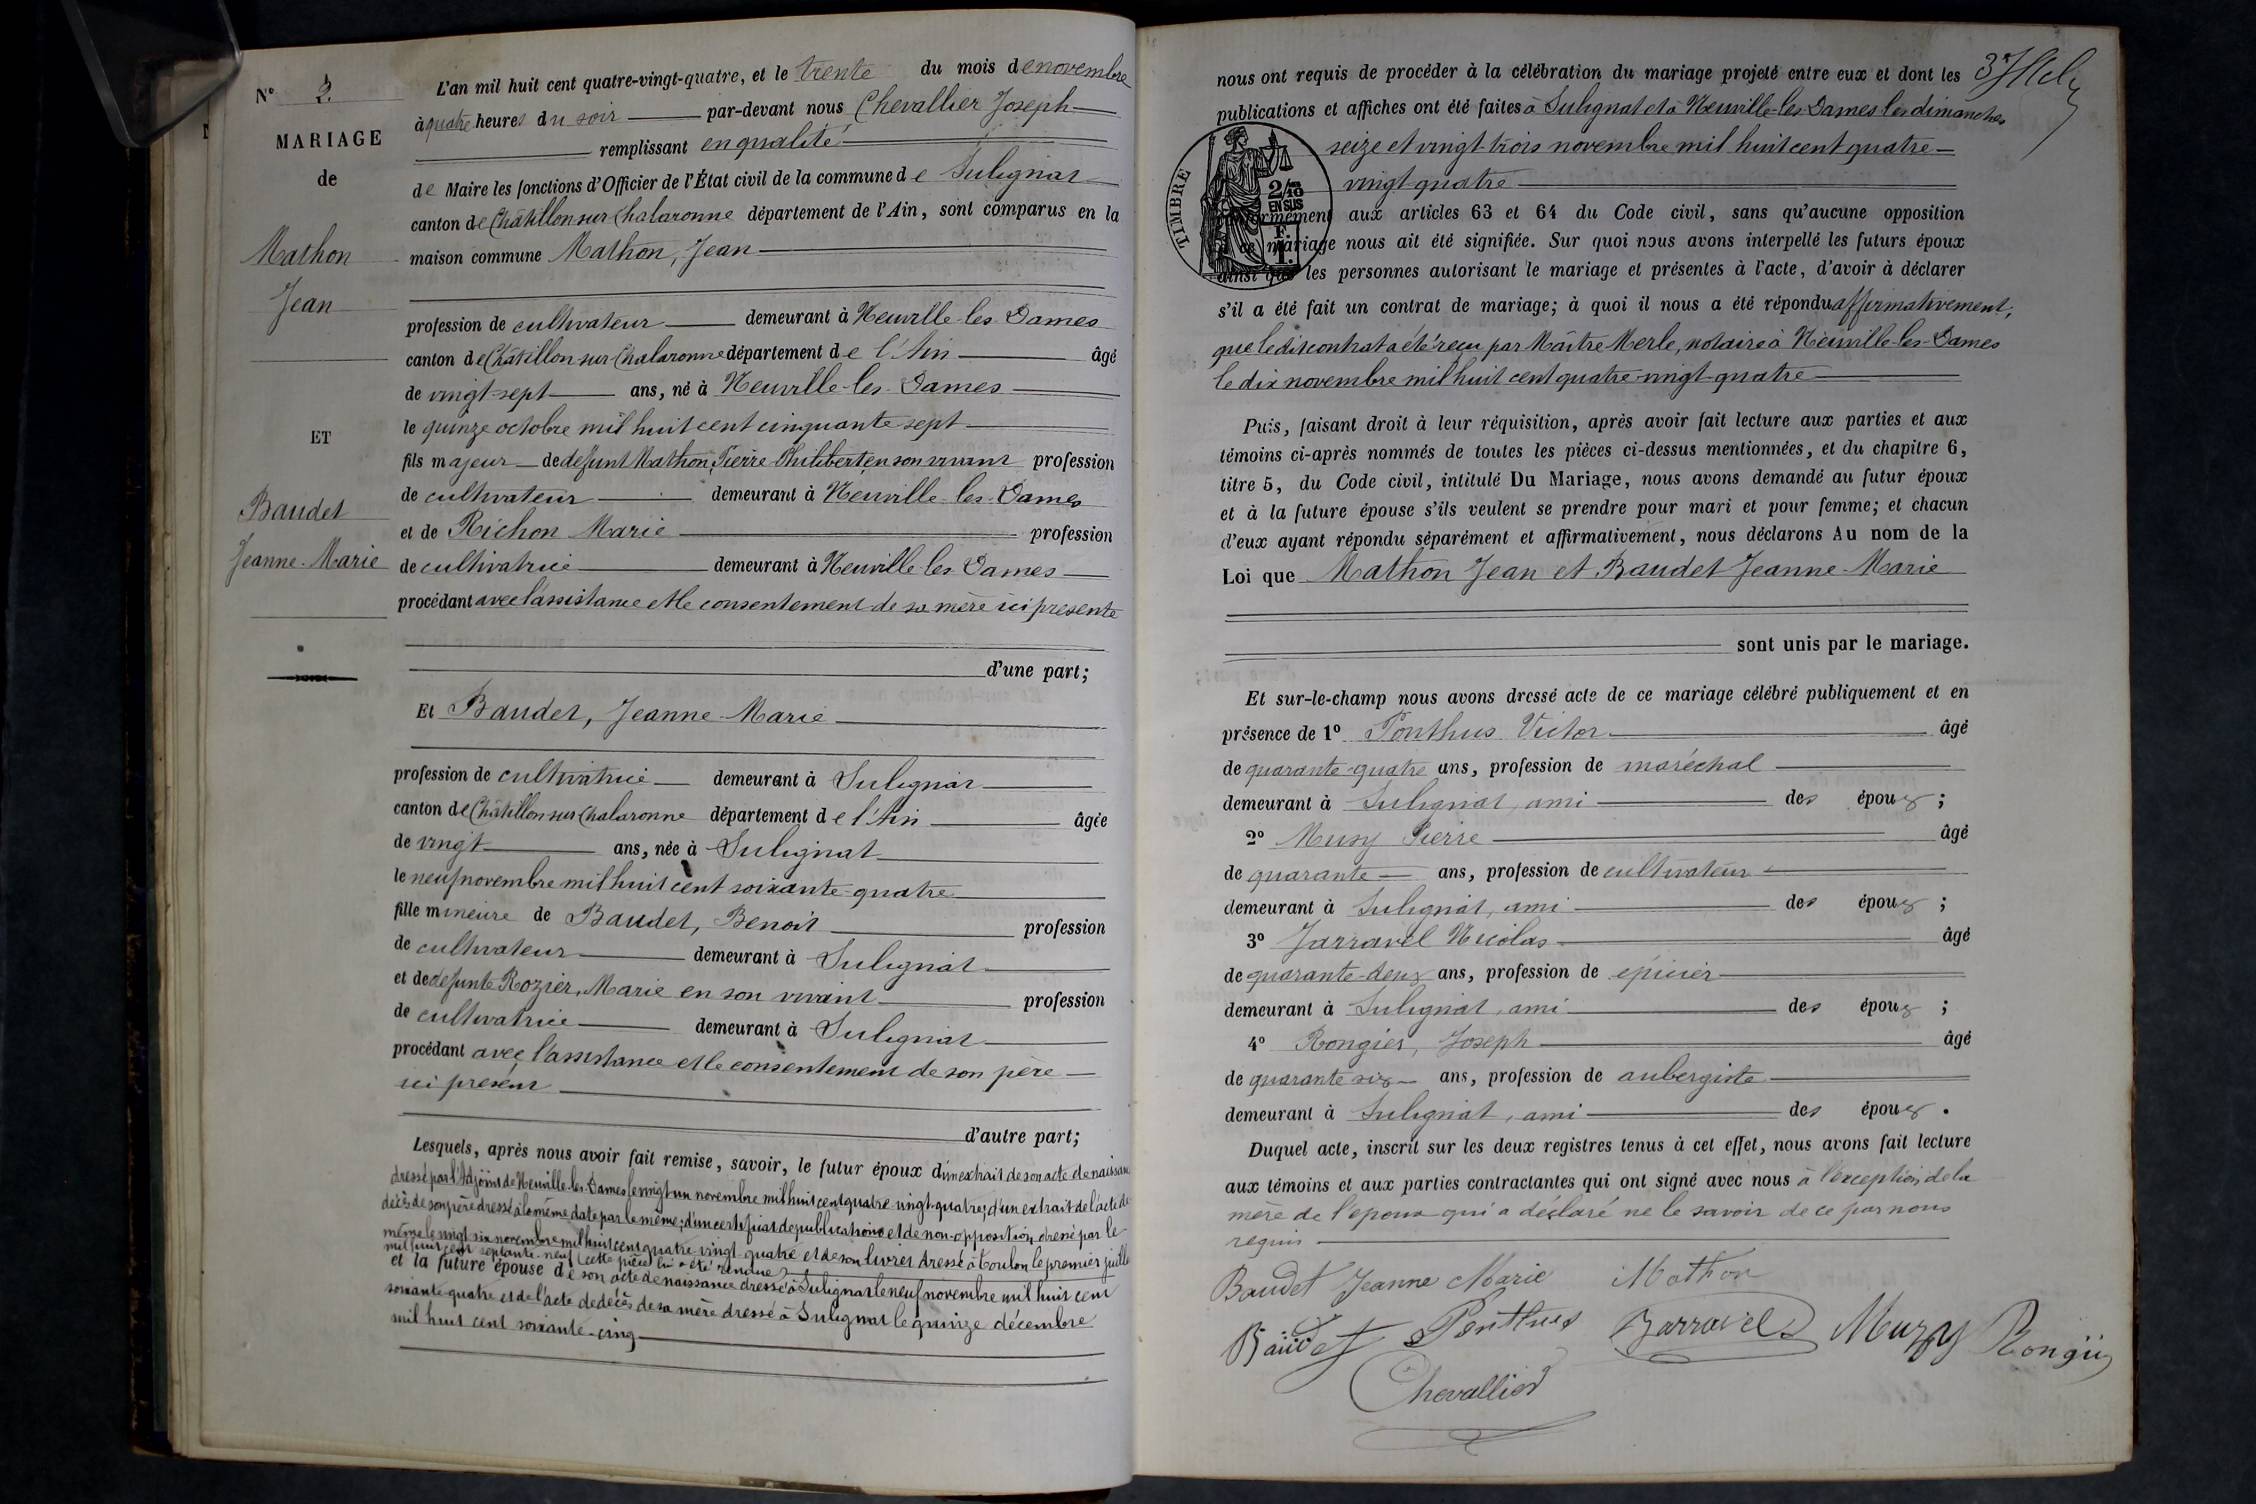 N° 2.
MARIAGE
de
Mathon
Jean
ET
Baudet
Jeanne-Marie
L'an mil huit cent quatre-vingt-quatre, et le trente du mois de novembre
à quatre heures du soir par-devant nous Chevallier Joseph
remplissant en qualité
de Maire les fonctions d'Officier de l'État civil de la commune de Sulignat
canton de Châtillon sur Chalaronne département de l'Ain, sont comparus en la
maison commune Mathon, Jean
profession de cultivateur demeurant à Neuville-les-Dames
canton de Châtillon sur Chalaronne département de l'Ain âgé
de vingt-sept ans, né à Neuville-les-Dames
le quinze octobre mil huit cent cinquante sept
fils majeur de defunt Mathon, Pierre Philibert en son vivant profession
de cultivateur demeurant à Neuville-les-Dames
et de Richon Marie profession
de cultivatrice demeurant à Neuville-les-Dames
procédant avec l'assistance et le consentement de sa mère ici presente
d'une part;
Et Baudet, Jeanne-Marie
profession de cultivatrice demeurant à Sulignat
canton de Châtillon sur Chalaronne département de l'Ain âgée
de vingt ans, née à Sulignat
le neuf novembre mil huit cent soixante-quatre
fille mineure de Baudet, Benoit profession
de cultivateur demeurant à Sulignat
et de defunte Rozier, Marie en son vivant profession
de cultivatrice demeurant à Sulignat
procédant avec l'assistance et le consentement de son père
ici présent
d'autre part;
Lesquels, après nous avoir fait remise, savoir, le futur époux d'un extrait de son acte de naissance
dressé par l'Adjoint de Neuville-les-Dames le vingt un novembre mil huit cent quatre-vingt-quatre; d'un extrait de l'acte de
décès de son père dressé à la même date par le même; d'un certificat de publications et de non-opposition dressé par le
même le vingt six novembre mil huit cent quatre-vingt-quatre et de son livret dressé à Toulon le premier juillet
mil huit cent septante-neuf (cette pièce lui a été rendue)
et la future épouse de son acte de naissance dressé à Sulignat le neuf novembre mil huit cent
soixante-quatre et de l'acte de décès de sa mère dressé à Sulignat le quinze décembre
mil huit cent soixante-cinq
nous ont requis de procéder à la célébration du mariage projeté entre eux et dont les
publications et affiches ont été faites à Sulignat et à Neuville-les-Dames les dimanches
seize et vingt trois novembre mil huit cent quatre-
vingt-quatre
TIMBRE 2/10 EN SUS
aux articles 63 et 64 du Code civil, sans qu'aucune opposition
mariage nous ait été signifiée. Sur quoi nous avons interpellé les futurs époux
ainsi que les personnes autorisant le mariage et présentes à l'acte, d'avoir à déclarer
s'il a été fait un contrat de mariage; à quoi il nous a été répondu affirmativement,
que le dis contrat a été reçu par Maître Merle, notaire à Neuville-les-Dames
le dix novembre mil huit cent quatre-vingt-quatre
Puis, faisant droit à leur réquisition, après avoir fait lecture aux parties et aux
témoins ci-après nommés de toutes les pièces ci-dessus mentionnées, et du chapitre 6,
titre 5, du Code civil, intitulé Du Mariage, nous avons demandé au futur époux
et à la future épouse s'ils veulent se prendre pour mari et pour femme; et chacun
d'eux ayant répondu séparément et affirmativement, nous déclarons Au nom de la
Loi que Mathon Jean et Baudet Jeanne-Marie
sont unis par le mariage.
Et sur-le-champ nous avons dressé acte de ce mariage célébré publiquement et en
présence de 1° Ponthus Victor âgé
de quarante-quatre ans, profession de maréchal
demeurant à Sulignat, ami des époux ;
2° Musy Pierre âgé
de quarante ans, profession de cultivateur
demeurant à Sulignat, ami des époux ;
3° Jarravel Nicolas âgé
de quarante-deux ans, profession de épicier
demeurant à Sulignat, ami des époux ;
4° Rongier, Joseph âgé
de quarante six ans, profession de aubergiste
demeurant à Sulignat, ami des époux .
Duquel acte, inscrit sur les deux registres tenus à cet effet, nous avons fait lecture
aux témoins et aux parties contractantes qui ont signé avec nous à l'exception de la
mère de l'epoux qui a déclaré ne le savoir de ce par nous
requis
Baudet Jeanne Marie Mathon
Baudet Ponthus Jarravel Muzy
Chevallier